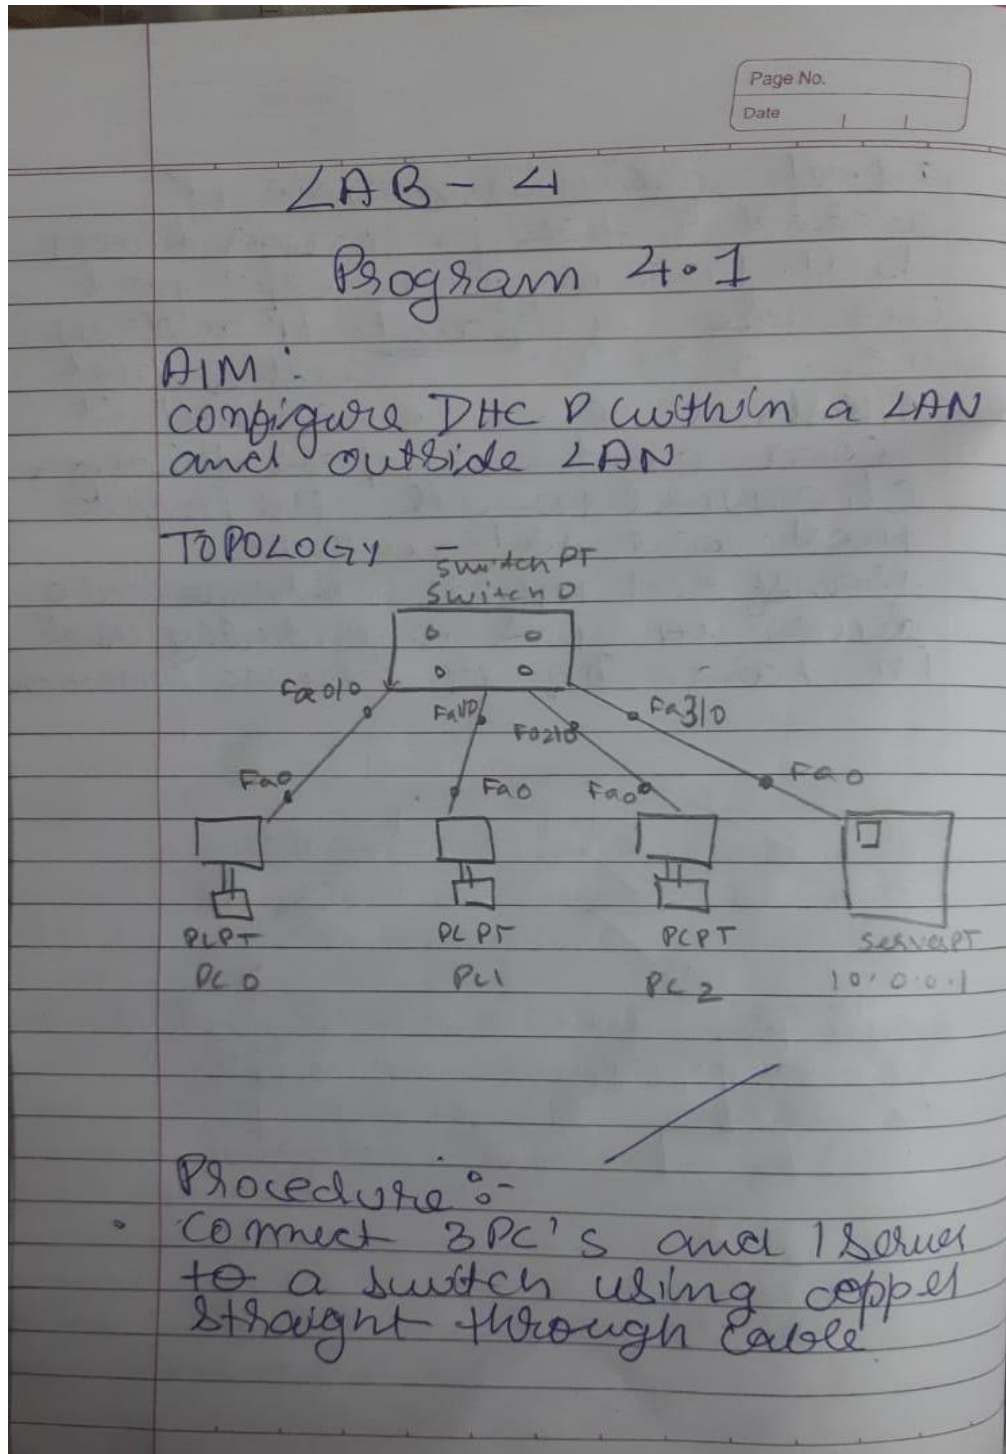 Page No.
Date
LAB - 4
Program 4.1
AIM :
configure DHCP within a LAN
and outside LAN
TOPOLOGY -
Switch PT
Switch 0
Fa0/0 Fa1/0 Fa2/0 Fa3/0
Fa0 Fa0 Fa0 Fa0
PCPT PCPT PCPT ServerPT
PC0 PC1 PC2 10.0.0.1
Procedure :-
• Connect 3PC's and 1 Server
to a switch using copper
straight through cable